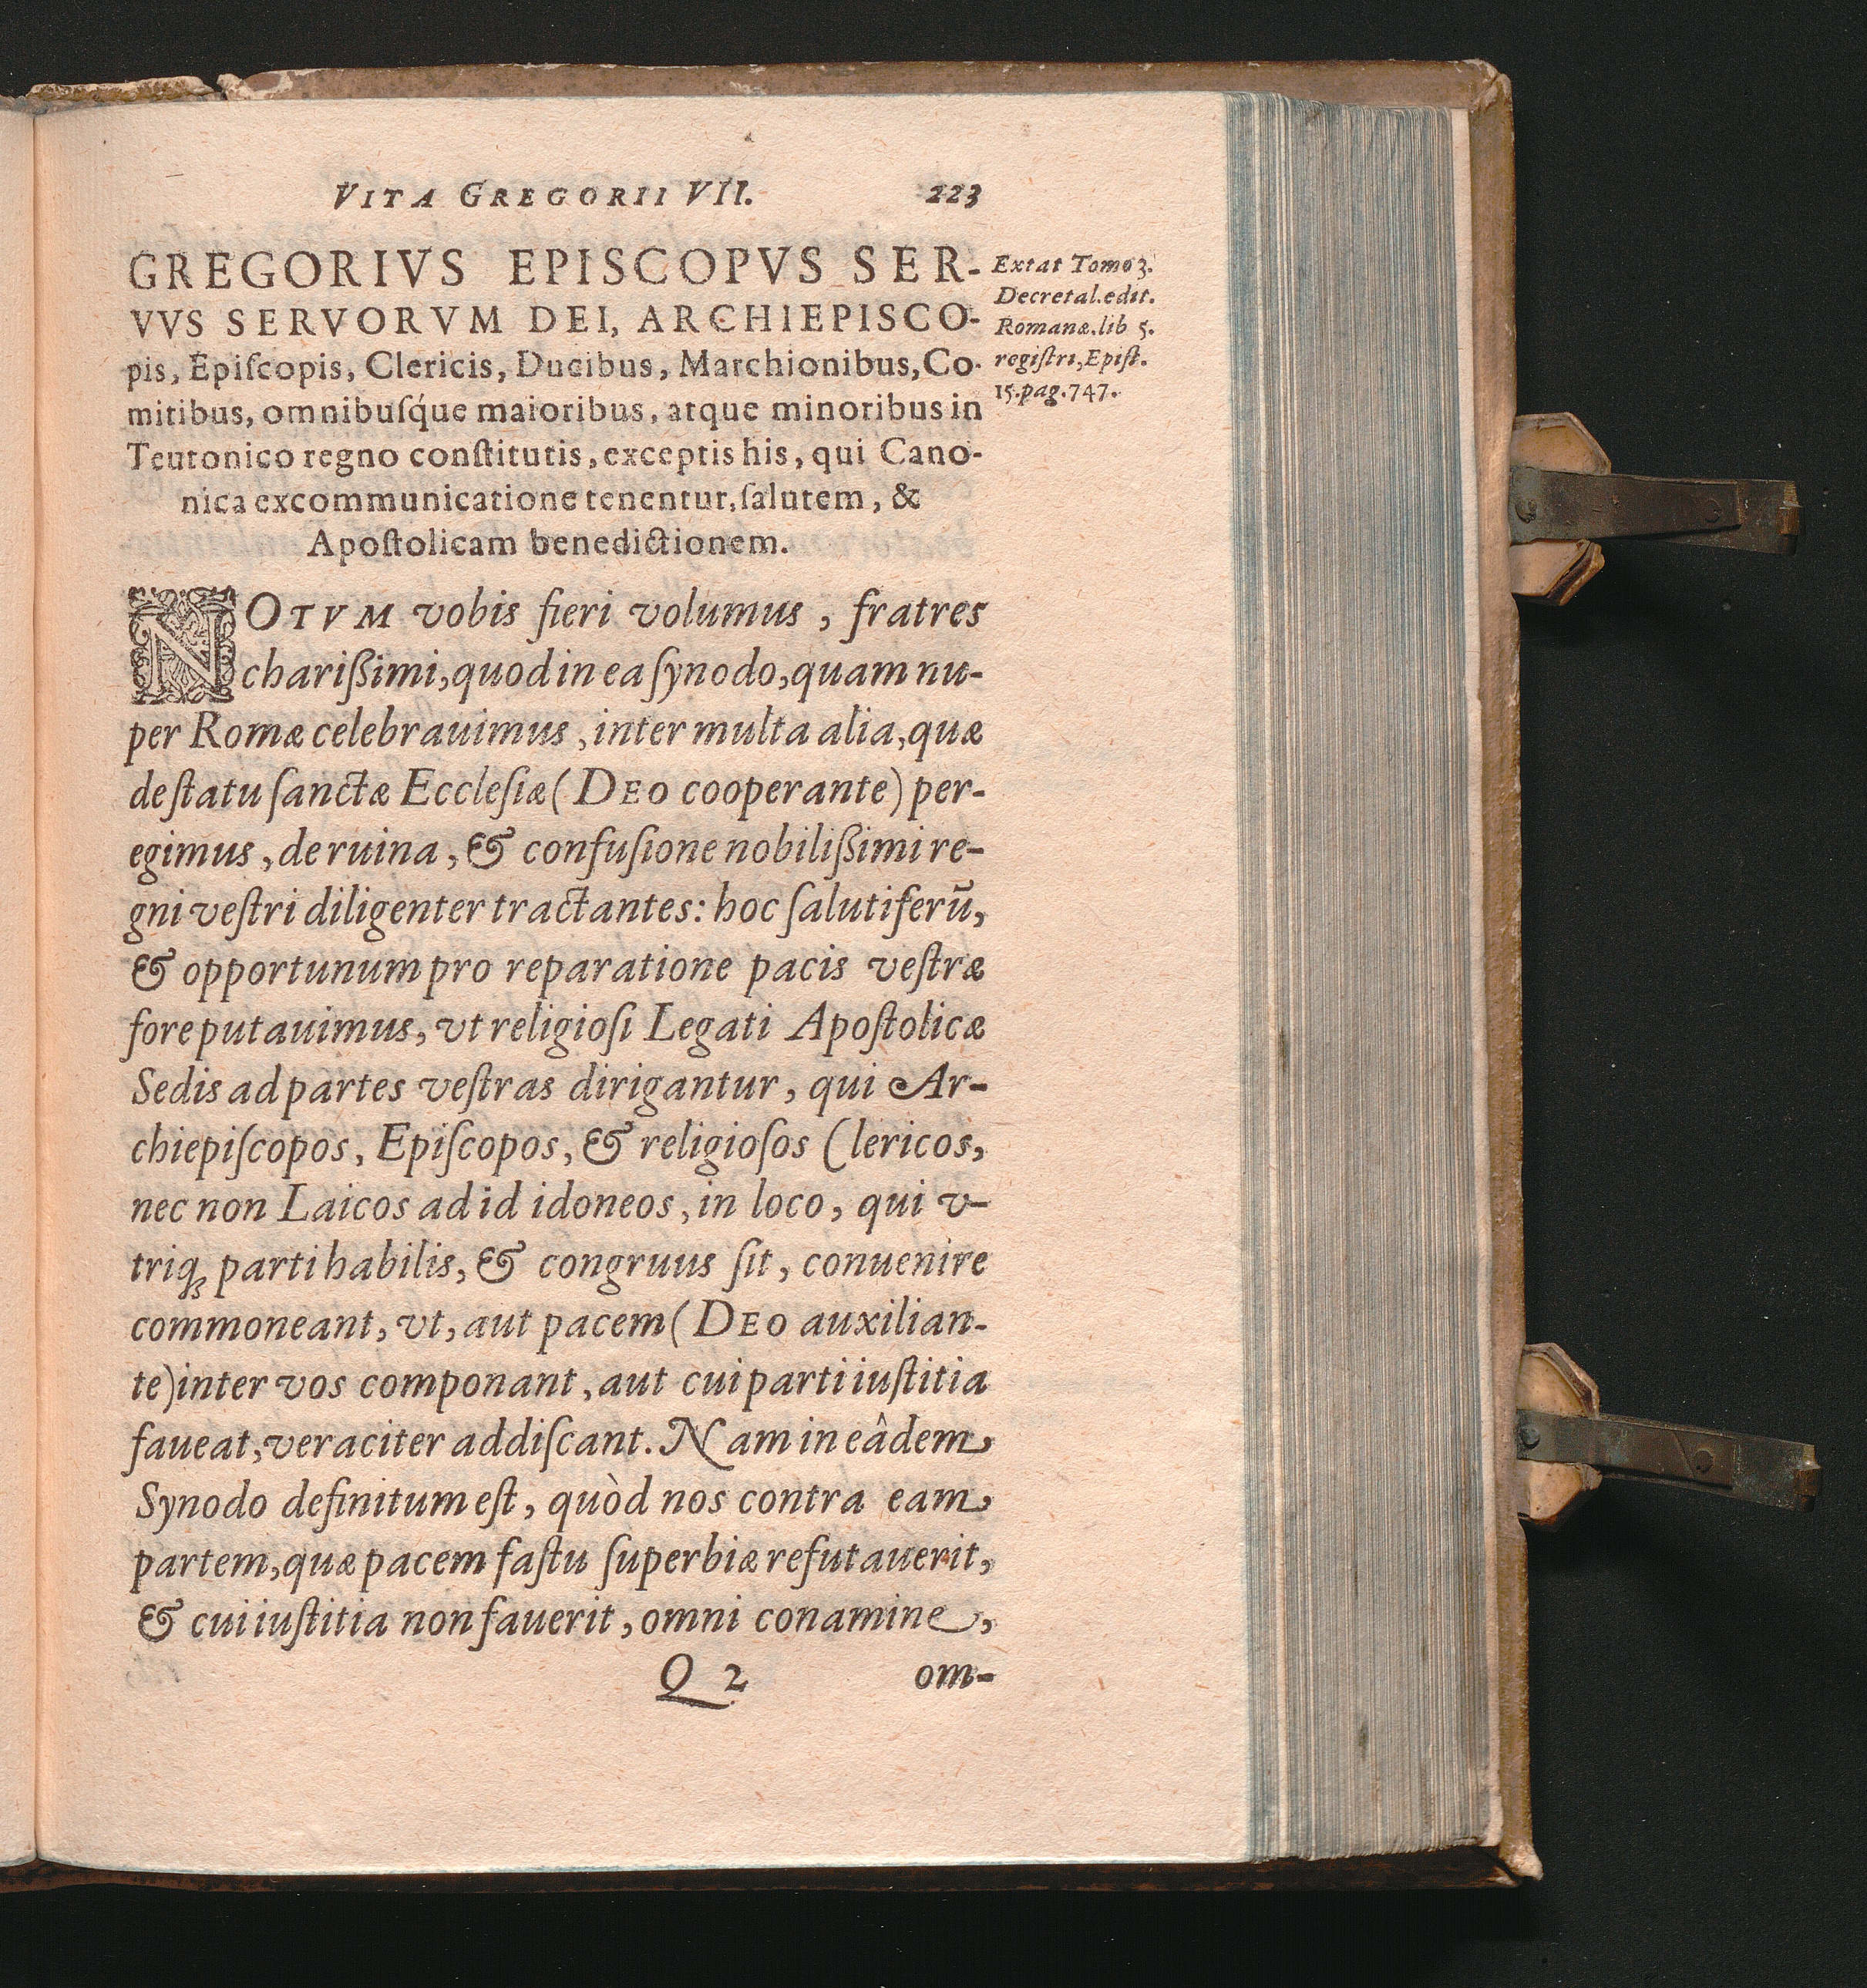 VITA GREGORII VII. 223
GREGORIVS EPISCOPVS SER-
VVS SERVORVM DEI, ARCHIEPISCO-
pis, Epiſcopis, Clericis, Ducibus, Marchionibus, Co-
mitibus, omnibuſq́ue maioribus, atque minoribus in
Teutonico regno conſtitutis, exceptis his, qui Cano-
nica excommunicatione tenentur, ſalutem, &
Apoſtolicam benedictionem.
Extat Tomo 3.
Decretal. edit.
Romanæ. lib 5.
regiſtri, Epiſt.
15. pag. 747.
NOTVM vobis fieri volumus, fratres
charißimi, quod in ea ſynodo, quam nu-
per Romæ celebrauimus, inter multa alia, quæ
de ſtatu ſanctæ Eccleſiæ (DEO cooperante) per-
egimus, de ruina, & confuſione nobilißimi re-
gni veſtri diligenter tractantes: hoc ſalutiferū,
& opportunum pro reparatione pacis veſtræ
fore putauimus, vt religioſi Legati Apoſtolicæ
Sedis ad partes veſtras dirigantur, qui Ar-
chiepiſcopos, Epiſcopos, & religioſos Clericos,
nec non Laicos ad id idoneos, in loco, qui v-
triq; parti habilis, & congruus ſit, conuenire
commoneant, vt, aut pacem (DEO auxilian-
te) inter vos componant, aut cui parti iuſtitia
faueat, veraciter addiſcant. Nam in eâdem
Synodo definitum eſt, quòd nos contra eam
partem, quæ pacem faſtu ſuperbiæ refutauerit,
& cui iuſtitia non fauerit, omni conamine,
Q 2 om-